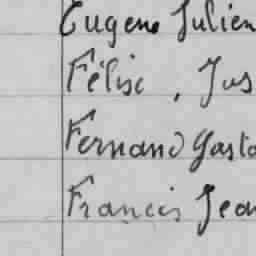 Eugene Julien
Félise, Jus
Fernand Gasto
Francis Jean